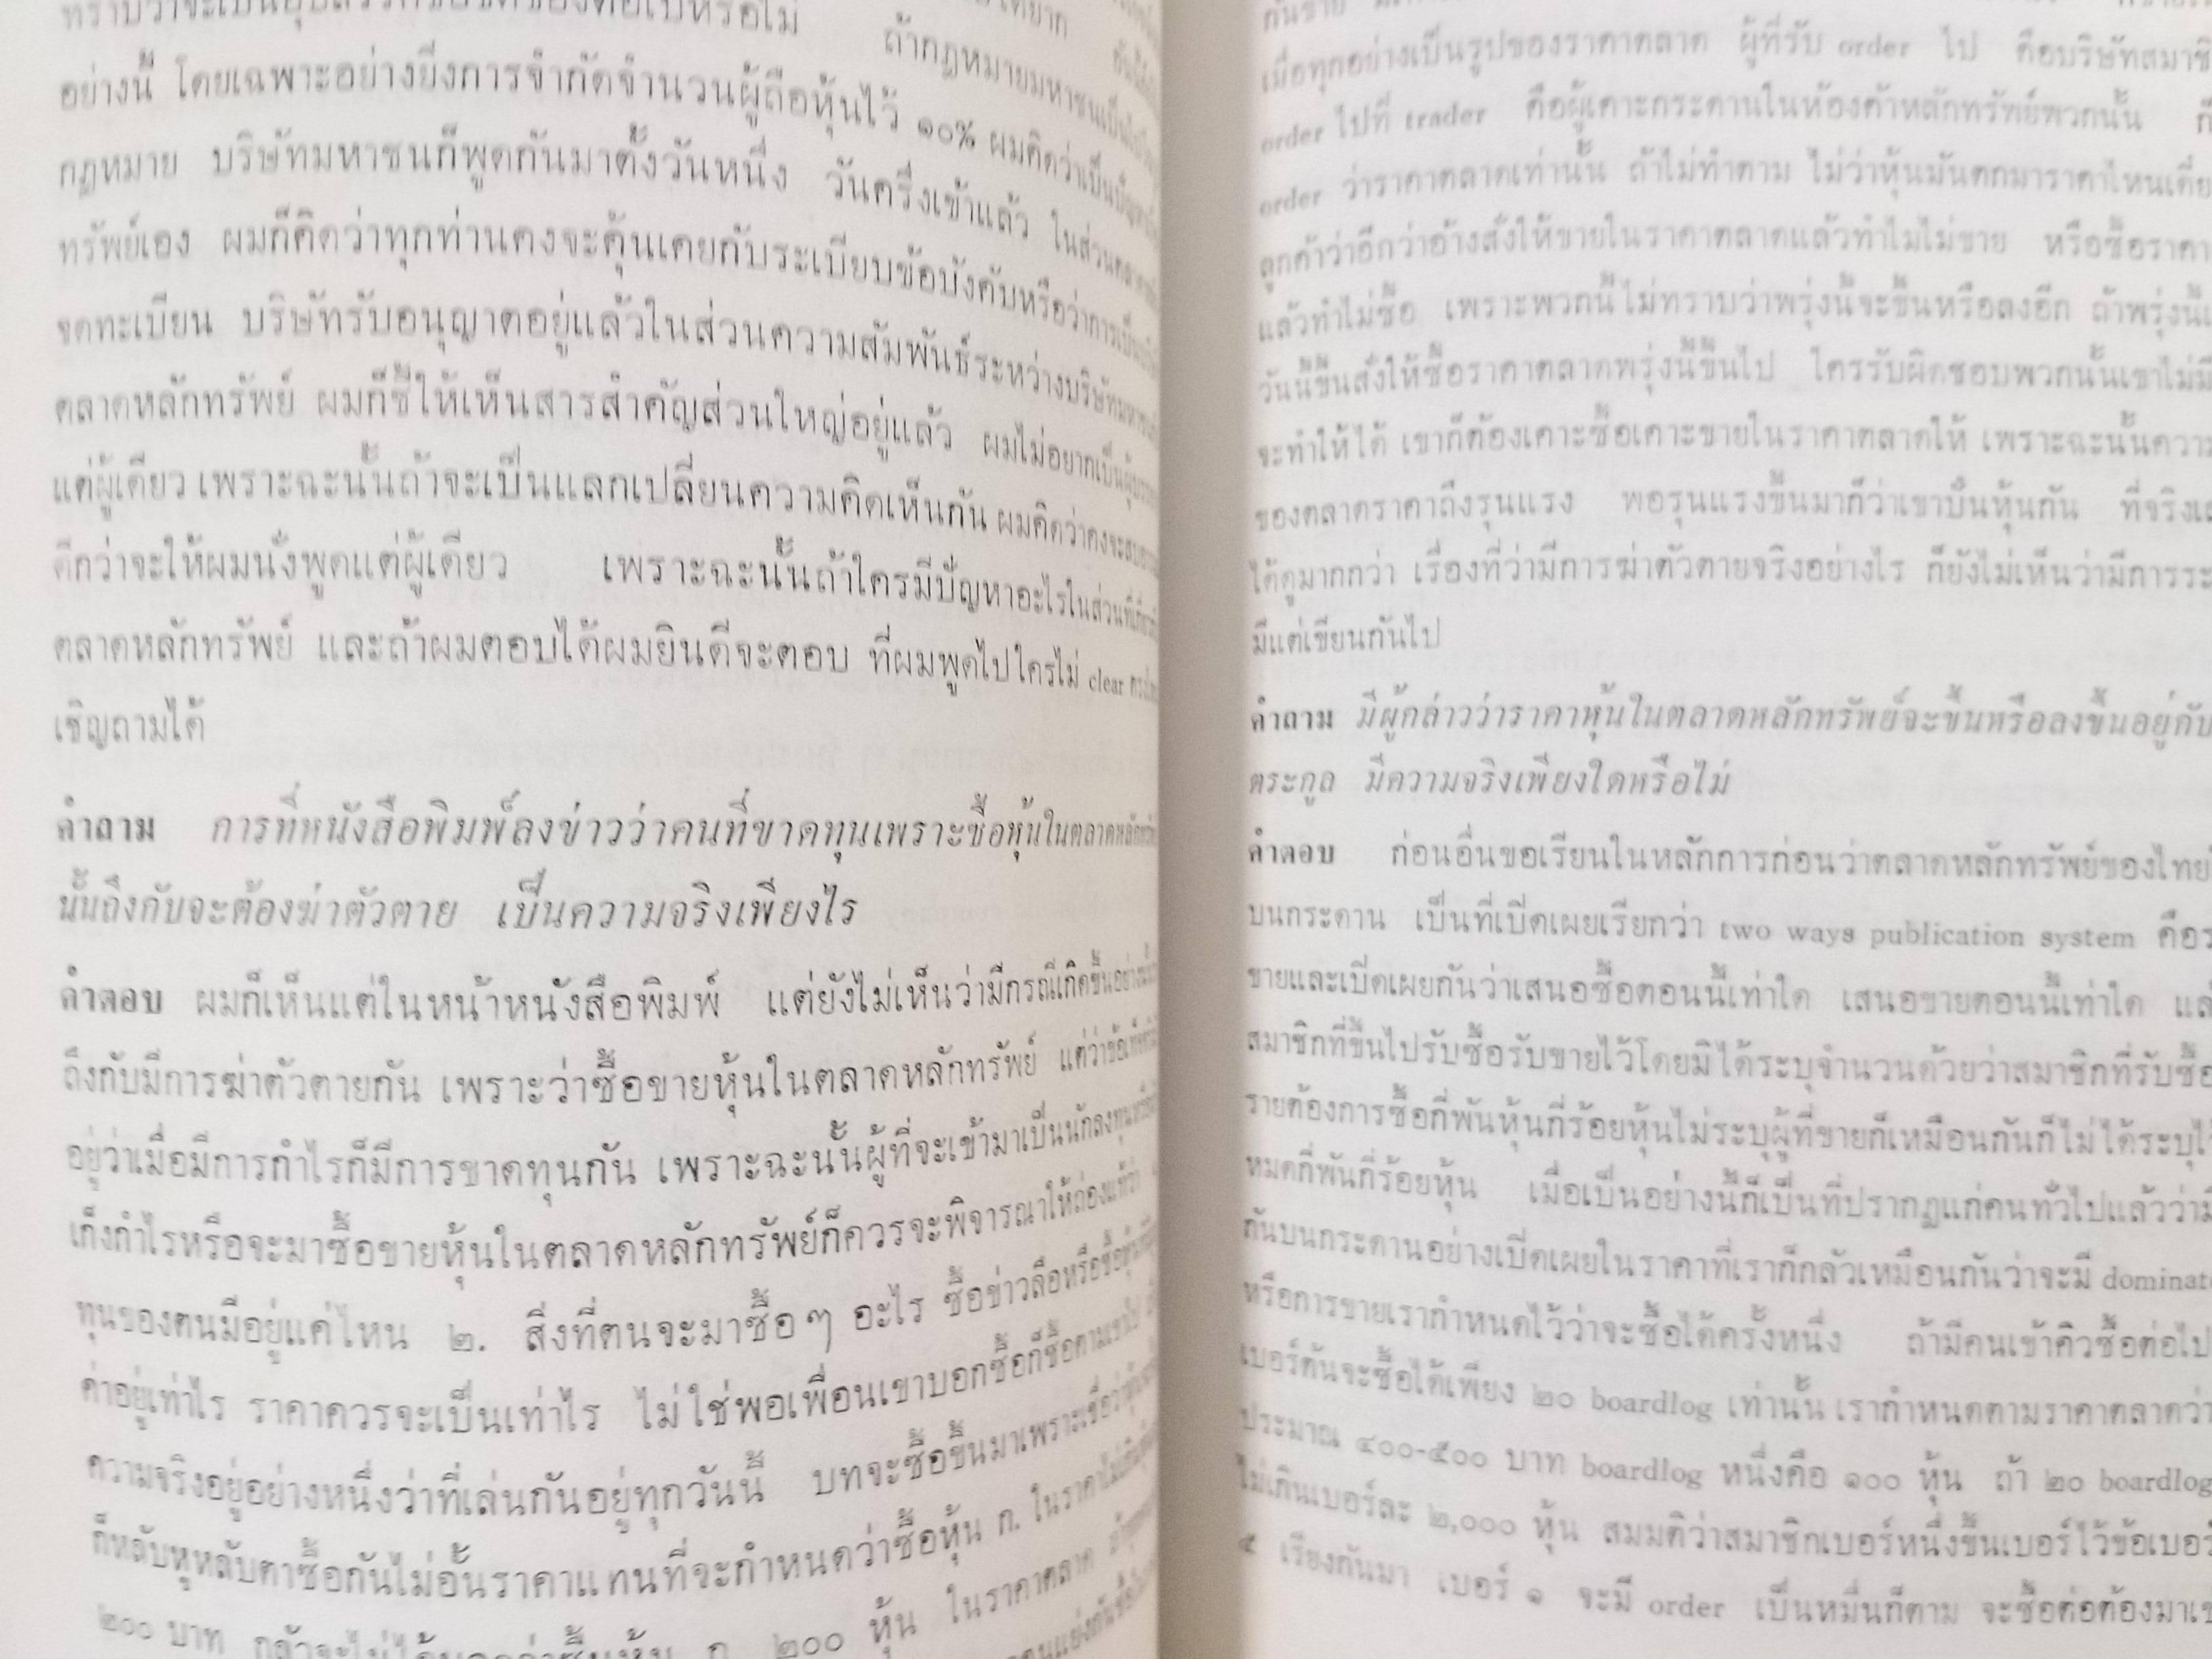 ทราบว่าจะเป็นอุปสรรคข้อขัดข้องต่อไปหรือไม่ ถ้ากฎหมายมหาชนเป็น
อย่างนี้ โดยเฉพาะอย่างยิ่งการจำกัดจำนวนผู้ถือหุ้นไว้ ๑๐% ผมคิดว่าเป็นปัญหา
กฎหมาย บริษัทมหาชนก็พูดกันมาตั้งวันหนึ่ง วันครึ่งเข้าแล้ว ในส่วนตลาด
ทรัพย์เอง ผมก็คิดว่าทุกท่านคงจะคุ้นเคยกับระเบียบข้อบังคับหรือว่าการเป็น
จดทะเบียน บริษัทรับอนุญาตอยู่แล้วในส่วนความสัมพันธ์ระหว่างบริษัทมหาชน
ตลาดหลักทรัพย์ ผมก็ชี้ให้เห็นสารสำคัญส่วนใหญ่อยู่แล้ว ผมไม่อยากเป็นผู้
แต่ผู้เดียว เพราะฉะนั้นถ้าจะเป็นแลกเปลี่ยนความคิดเห็นกัน ผมคิดว่าคงจะ
ดีกว่าจะให้ผมนั่งพูดแต่ผู้เดียว เพราะฉะนั้นถ้าใครมีปัญหาอะไรในส่วนที่
ตลาดหลักทรัพย์ และถ้าผมตอบได้ผมยินดีจะตอบ ที่ผมพูดไปใครไม่ clear
เชิญถามได้
คำถาม การที่หนังสือพิมพ์ลงข่าวว่าคนที่ขาดทุนเพราะซื้อหุ้นในตลาดหลักทรัพย์
นั้นถึงกับจะต้องฆ่าตัวตาย เป็นความจริงเพียงไร
คำตอบ ผมก็เห็นแต่ในหน้าหนังสือพิมพ์ แต่ยังไม่เห็นว่ามีกรณีเกิดขึ้นอย่างนั้น
ถึงกับมีการฆ่าตัวตายกัน เพราะว่าซื้อขายหุ้นในตลาดหลักทรัพย์ แต่ว่าข้อเท็จจริง
อยู่ว่าเมื่อมีการกำไรก็มีการขาดทุนกัน เพราะฉะนั้นผู้ที่จะเข้ามาเป็นนักลงทุน
เก็งกำไรหรือจะมาซื้อขายหุ้นในตลาดหลักทรัพย์ก็ควรจะพิจารณาให้ถ่องแท้ว่า
ทุนของตนมีอยู่แค่ไหน ๒. สิ่งที่ตนจะมาซื้อ ๆ อะไร ซื้อข่าวลือหรือซื้อหุ้น
ค่าอยู่เท่าไร ราคาควรจะเป็นเท่าไร ไม่ใช่พอเพื่อนเขาบอกซื้อก็ซื้อตามเขาไป
ความจริงอยู่อย่างหนึ่งว่าที่เล่นกันอยู่ทุกวันนี้ บทจะซื้อขึ้นมาเพราะเชื่อว่า
ก็หลับหูหลับตาซื้อกันไม่อั้นราคาแทนที่จะกำหนดว่าซื้อหุ้น ก. ในราคาไม่เกิน
๒๐๐ บาท ๒๐๐ หุ้น ในราคาตลาด
เมื่อทุกอย่างเป็นรูปของราคาตลาด ผู้ที่รับ order ไป คือบริษัทสมาชิ
order ไปที่ trader คือผู้เคาะกระดานในห้องค้าหลักทรัพย์พวกนั้น ก็
order ว่าราคาตลาดเท่านั้น ถ้าไม่ทำตาม ไม่ว่าหุ้นมันตกมาราคาไหนเดี๋ย
ลูกค้าว่าอีกว่าอ้างสั่งให้ขายในราคาตลาดแล้วทำไมไม่ขาย หรือซื้อราคา
แล้วทำไม่ซื้อ เพราะพวกนี้ไม่ทราบว่าพรุ่งนี้จะขึ้นหรือลงอีก ถ้าพรุ่งนี้
วันนี้ขึ้นสั่งให้ซื้อราคาตลาดพรุ่งนี้ขึ้นไป ใครรับผิดชอบพวกนั้นเขาไม่มี
จะทำให้ได้ เขาก็ต้องเคาะซื้อเคาะขายในราคาตลาดให้ เพราะฉะนั้นความ
ของตลาดราคาถึงรุนแรง พอรุนแรงขึ้นมาก็ว่าเขาปั่นหุ้นกัน ที่จริง
ได้ดูมากกว่า เรื่องที่ว่ามีการฆ่าตัวตายจริงอย่างไร ก็ยังไม่เห็นว่ามีการระ
มีแต่เขียนกันไป
คำถาม มีผู้กล่าวว่าราคาหุ้นในตลาดหลักทรัพย์จะขึ้นหรือลงขึ้นอยู่กับ
ตระกูล มีความจริงเพียงใดหรือไม่
คำตอบ ก่อนอื่นขอเรียนในหลักการก่อนว่าตลาดหลักทรัพย์ของไทย
บนกระดาน เป็นที่เปิดเผยเรียกว่า two ways publication system คือ
ขายและเปิดเผยกันว่าเสนอซื้อตอนนี้เท่าใด เสนอขายตอนนี้เท่าใด แล้
สมาชิกที่ขึ้นไปรับซื้อรับขายไว้โดยมิได้ระบุจำนวนด้วยว่าสมาชิกที่รับซื้อ
รายต้องการซื้อกี่พันหุ้นกี่ร้อยหุ้นไม่ระบุผู้ที่ขายก็เหมือนกันก็ไม่ได้ระบุไ
หมดกี่พันกี่ร้อยหุ้น เมื่อเป็นอย่างนี้ก็เป็นที่ปรากฏแก่คนทั่วไปแล้วว่ามี
กันบนกระดานอย่างเปิดเผยในราคาที่เราก็กลัวเหมือนกันว่าจะมี dominat
หรือการขายเรากำหนดไว้ว่าจะซื้อได้ครั้งหนึ่ง ถ้ามีคนเข้าคิวซื้อต่อไป
เบอร์ต้นจะซื้อได้เพียง ๒๐ boardlog เท่านั้น เรากำหนดตามราคาตลาดว่า
ประมาณ ๔๐๐-๕๐๐ บาท boardlog หนึ่งคือ ๑๐๐ หุ้น ถ้า ๒๐ boardlog
ไม่เกินเบอร์ละ ๒,๐๐๐ หุ้น สมมติว่าสมาชิกเบอร์หนึ่งขึ้นเบอร์ไว้ข้อเบอร์
๕ เรียงกันมา เบอร์ ๑ จะมี order เป็นหมื่นก็ตาม จะซื้อต่อต้องมาเข